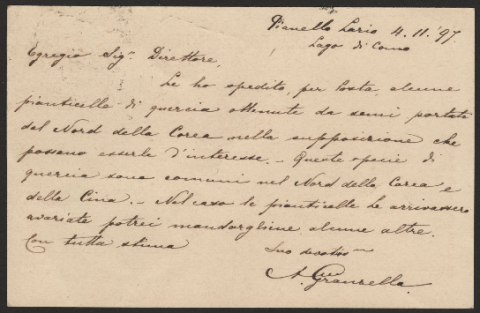 Pianello Lario 4.11.'97
Lago di Como
Egregio Sig. Direttore,
Le ho spedito, per Posta alcune
pianticelle di quercia ottenute da semi portati
dal Nord della Corea nella supposizione che
possano esserle d'interesse. - Queste specie di
quercia sono comuni nel Nord della Corea e
della Cina. - Nel caso le pianticelle Le arrivassero
avariate potrei mandargliene alcune altre.
Con tutta stima
Suo devotos.mo